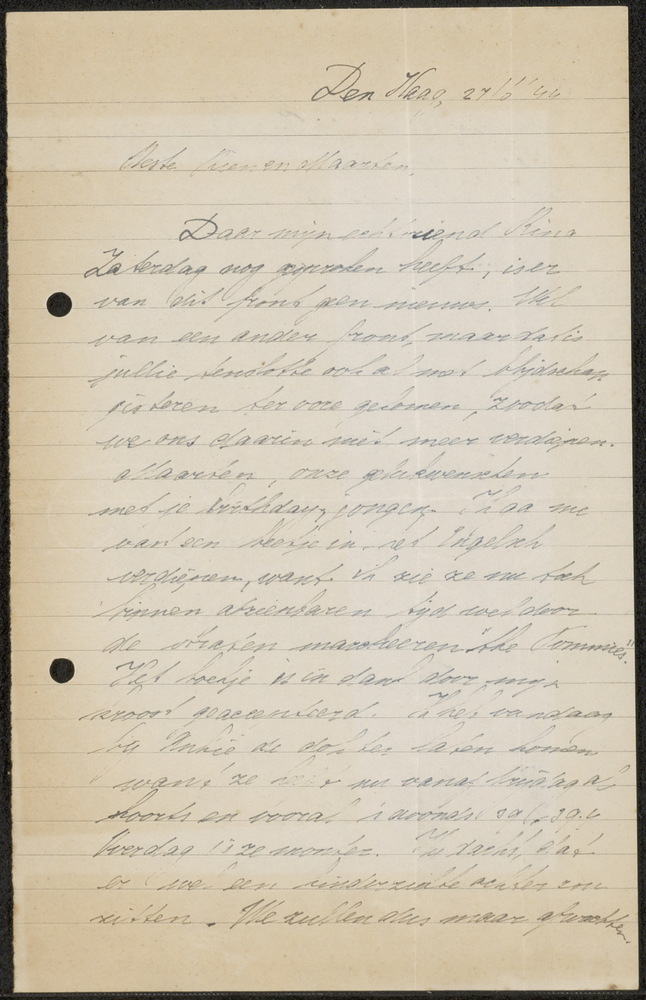 Den Haag, 27/6 '44
Beste Toen en Maarten,
Daar mijn echtvriend Rina
Zaterdag nog gesproken heeft, is er
van dit front geen nieuws. Wel
van een ander front, maar dat is
jullie tenslotte ook al met blijdschap
gisteren ter oore gekomen, zoodat
we ons daarin niet meer verdiepen.
Maarten, onze gelukwenschen
met je birthday, jongen. Ik ga me
vast een beetje in het Engelsch
verdiepen, want ik zie ze nu toch
binnen afzienbaren tijd wel door
de straten marcheeren "the Tommies."
Het boekje is in dank door mijn
kroost geaccepteerd. Ik heb vandaag
bij Ankie de dokter laten komen
want ze heeft nu vanaf Vrijdag al
koorts en vooral 's avonds 39.4
Overdag is ze monter. Hij dacht, dat
er wel een kinderziekte achter zou
zitten. We zullen dus maar afwachten.